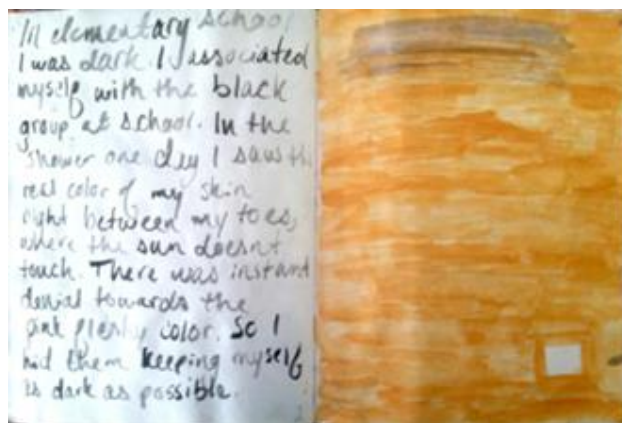 In elementary school
I was dark. I associated
myself with the black
group at school. In the
shower one day I saw the
real color of my skin
right between my toes,
where the sun doesnt
touch. There was instant
denial towards the
pink fleshy color. So I
hid them keeping myself
as dark as possible.